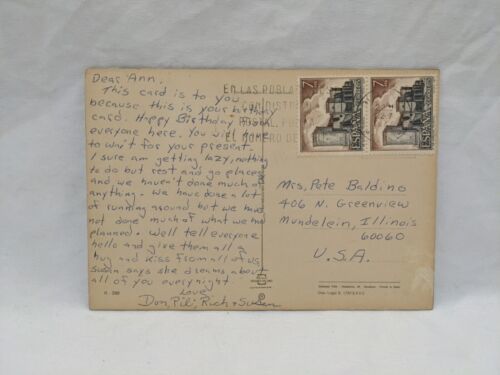 Dear Ann.
This card is to you
because this is your birthday
card. Happy Birthday from
everyone here. You will have
to wait for your present.
I sure am getting lazy, nothing
to do but rest and go places
and we haven't done much of
anything. We have done a lot
of running around but we have
not done much of what we had
planned. Well tell everyone
hello and give them all a
hug and kiss from all of us
Susan says she dreams about
all of you every night.
Love
Don, Pili, Rich & Susan
EN LAS POBLA
CON DISTRI
POSTAL, PO
EL NUMERO DE
7
ESPAÑA
7
ESPAÑA
Mrs. Pete Baldino
406 N. Greenview
Mundelein, Illinois
60060
U.S.A.